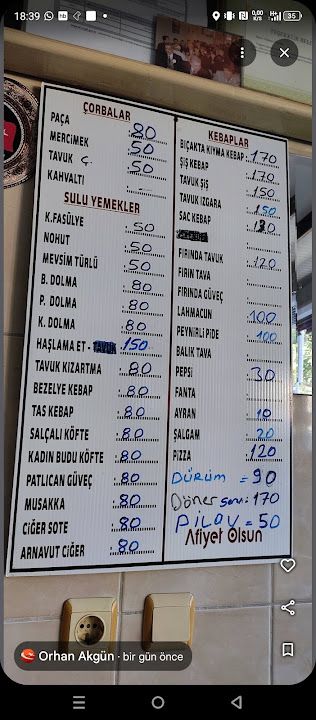 18:39
0,00 K/s
35
ÇORBALAR
PAÇA : 80
MERCİMEK : 50
TAVUK Ç. : 50
KAHVALTI
SULU YEMEKLER
K.FASÜLYE : 50
NOHUT : 50
MEVSİM TÜRLÜ : 50
B. DOLMA : 80
P. DOLMA : 80
K. DOLMA : 80
HAŞLAMA ET - : 150
TAVUK KIZARTMA : 80
BEZELYE KEBAP : 80
TAS KEBAP : 80
SALÇALI KÖFTE : 80
KADIN BUDU KÖFTE : 80
PATLICAN GÜVEÇ : 80
MUSAKKA : 80
CİĞER SOTE : 80
ARNAVUT CİĞER : 80
KEBAPLAR
BIÇAKTA KIYMA KEBAP : 170
ŞİŞ KEBAP : 170
TAVUK ŞİŞ : 150
TAVUK IZGARA : 150
SAC KEBAP
FIRINDA TAVUK : 120
FIRIN TAVA
FIRINDA GÜVEÇ
LAHMACUN : 100
PEYNİRLİ PİDE : 100
BALIK TAVA
PEPSİ : 30
FANTA
AYRAN : 10
ŞALGAM : 20
PİZZA : 120
DÜRÜM = 90
Döner : 170
PİLAV = 50
Afiyet Olsun
Orhan Akgün · bir gün önce